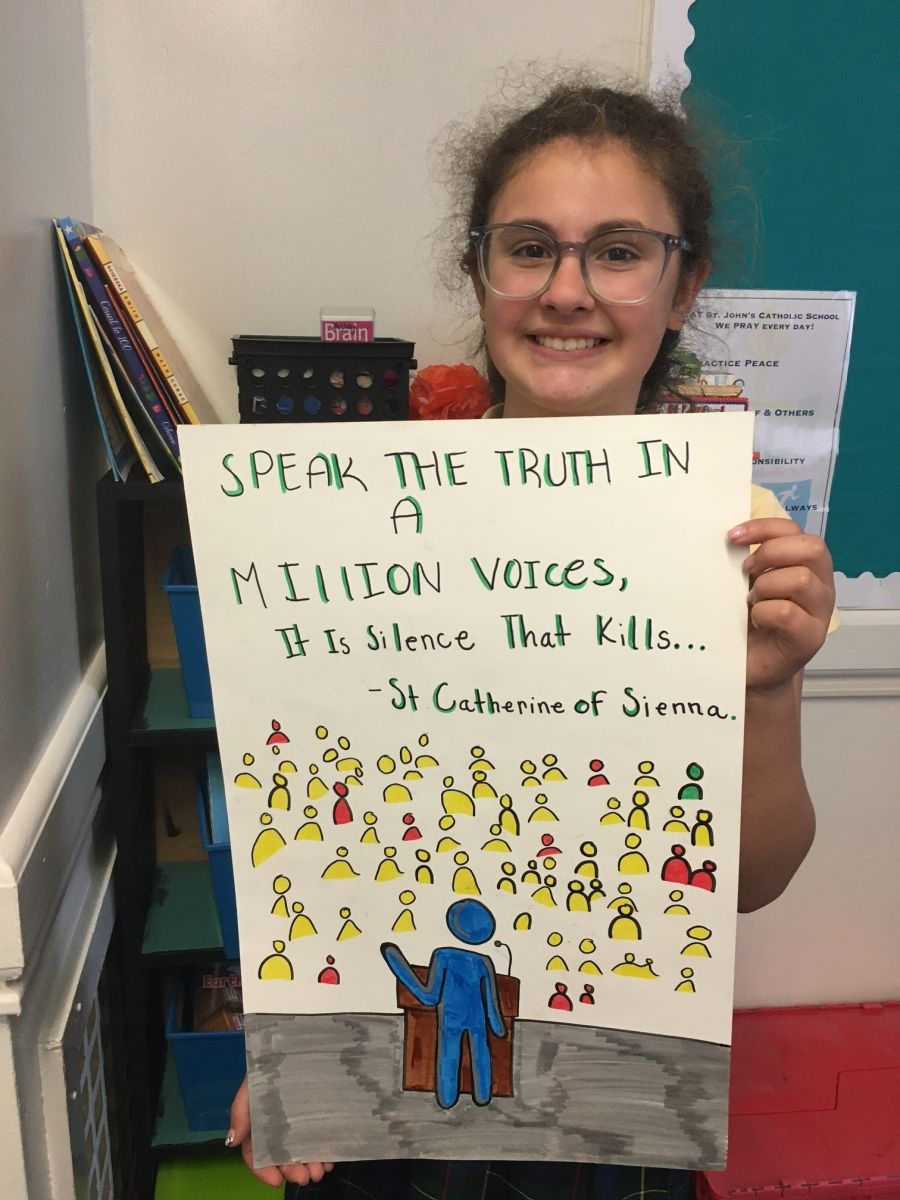 Brain
Count to 100
ST. JOHN'S CATHOLIC SCHOOL
WE PRAY EVERY DAY!
PRACTICE PEACE
F & OTHERS
ONSIBILITY
LWAYS
SPEAK THE TRUTH IN
A
MIllION VOICES,
It Is Silence That Kills...
-St Catherine of Sienna.
Earth